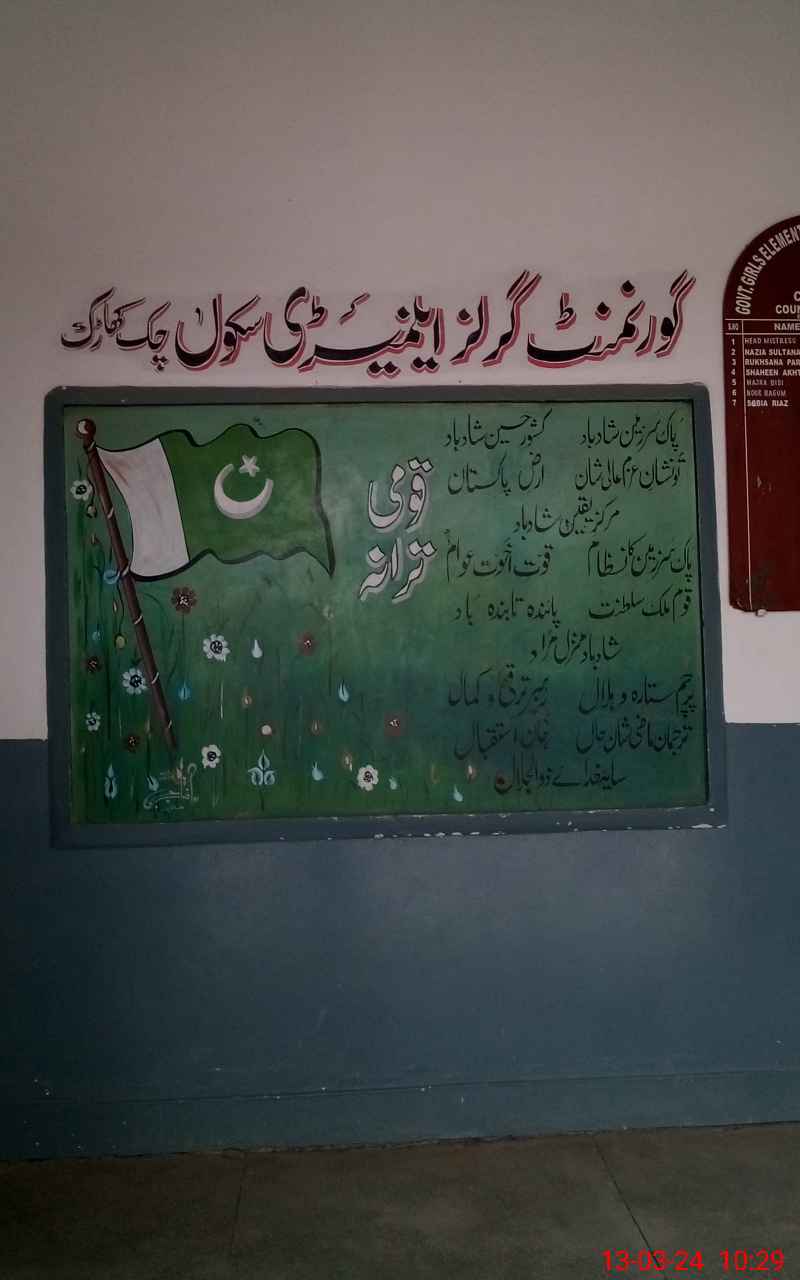 گورنمنٹ گرلز ایلمنیٹری سکول چک کھاڑک
قومی
ترانہ
پاک سرزمین شادباد کشور حسین شادباد
تو نشان عزم عالی شان ارض پاکستان
مرکز یقین شادباد
پاک سرزمین کا نظام قوت اخوت عوام
قوم ملک سلطنت پائندہ تابندہ باد
شادباد منزل مراد
پرچم ستارہ و ہلال رہبر ترقی و کمال
ترجمان ماضی شان حال جان استقبال
سایہ خدائے ذوالجلال
GOVT. GIRLS ELEMENT
COUN
S.NO NAME
1 HEAD MISTRESS
2 NAZIA SULTANA
3 RUKHSANA PAR
4 SHAHEEN AKHT
5 HAJRA BIBI
6 NOOR BAGUM
7 SOBIA RIAZ
13-03-24 10:29